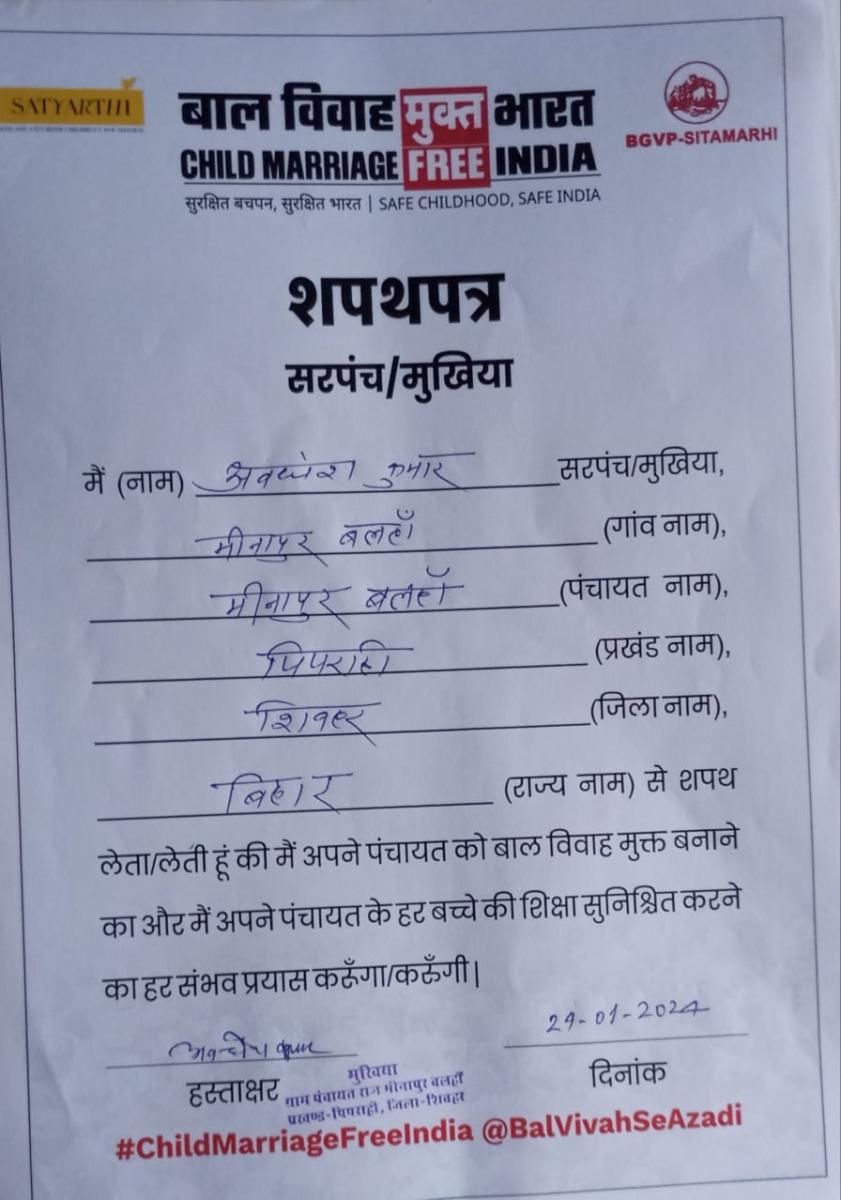 SATYARTHI
बाल विवाह मुक्त भारत
CHILD MARRIAGE FREE INDIA
सुरक्षित बचपन, सुरक्षित भारत | SAFE CHILDHOOD, SAFE INDIA
BGVP-SITAMARHI
शपथपत्र
सरपंच/मुखिया
मैं (नाम) अवधेश कुमार सरपंच/मुखिया,
मीनापुर बलहाँ (गांव नाम),
मीनापुर बलहाँ (पंचायत नाम),
पिपराही (प्रखंड नाम),
शिवहर (जिला नाम),
बिहार (राज्य नाम) से शपथ
लेता/लेती हूं की मैं अपने पंचायत को बाल विवाह मुक्त बनाने
का और मैं अपने पंचायत के हर बच्चे की शिक्षा सुनिश्चित करने
का हर संभव प्रयास करूँगा/करुँगी।
अवधेश कुमार
29-01-2024
हस्ताक्षर
दिनांक
मुखिया
ग्राम पंचायत राज मीनापुर बलहाँ
प्रखण्ड-पिपराही, जिला-शिवहर
#ChildMarriageFreeIndia @BalVivahSeAzadi